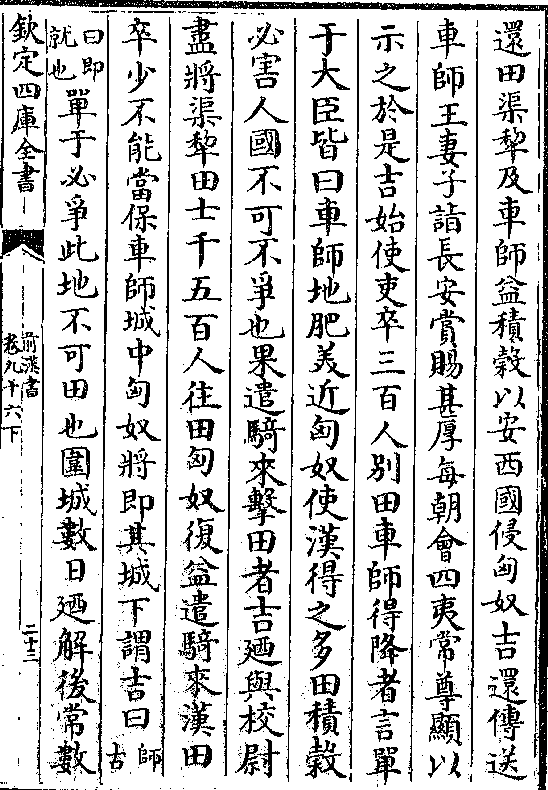 還田渠犂及車師益積穀以安西國侵匈奴吉還傳送
車師王妻子詣長安賞賜甚厚每朝會四夷常尊顯以
示之於是吉始使吏卒三百人别田車師得降者言單
于大臣皆曰車師地肥美近匈奴使漢得之多田積穀
必害人國不可不爭也果遣騎來擊田者吉廼與校尉
盡將渠犂田士千五百人往田匈奴復益遣騎來漢田
卒少不能當保車師城中匈奴將即其城下謂吉曰師古
曰即就也單于必爭此地不可田也圍城數日廼解後常數
欽定四庫全書
前漢書
卷九十六下
二十三